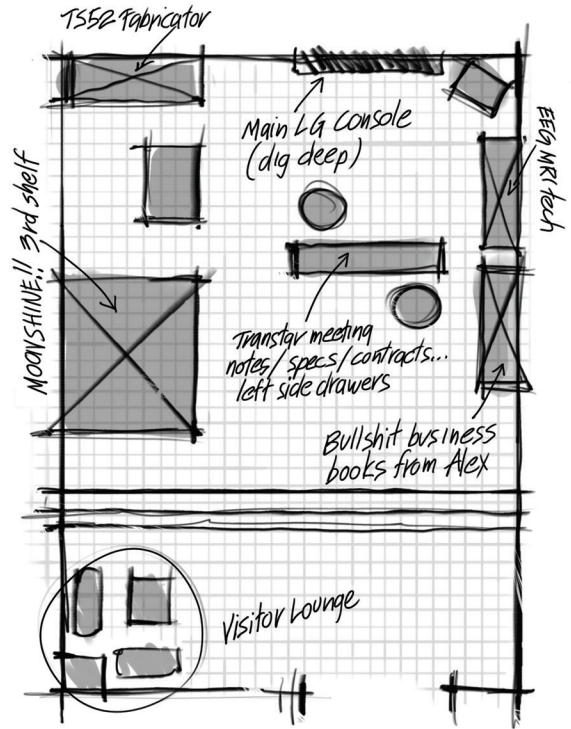 TS52 Fabricator
Main LG Console
(dig deep)
EEG MRI tech
MOONSHINE!! 3rd shelf
Transtar meeting
notes/specs/contracts...
left side drawers
Bullshit business
books from Alex
Visitor Lounge